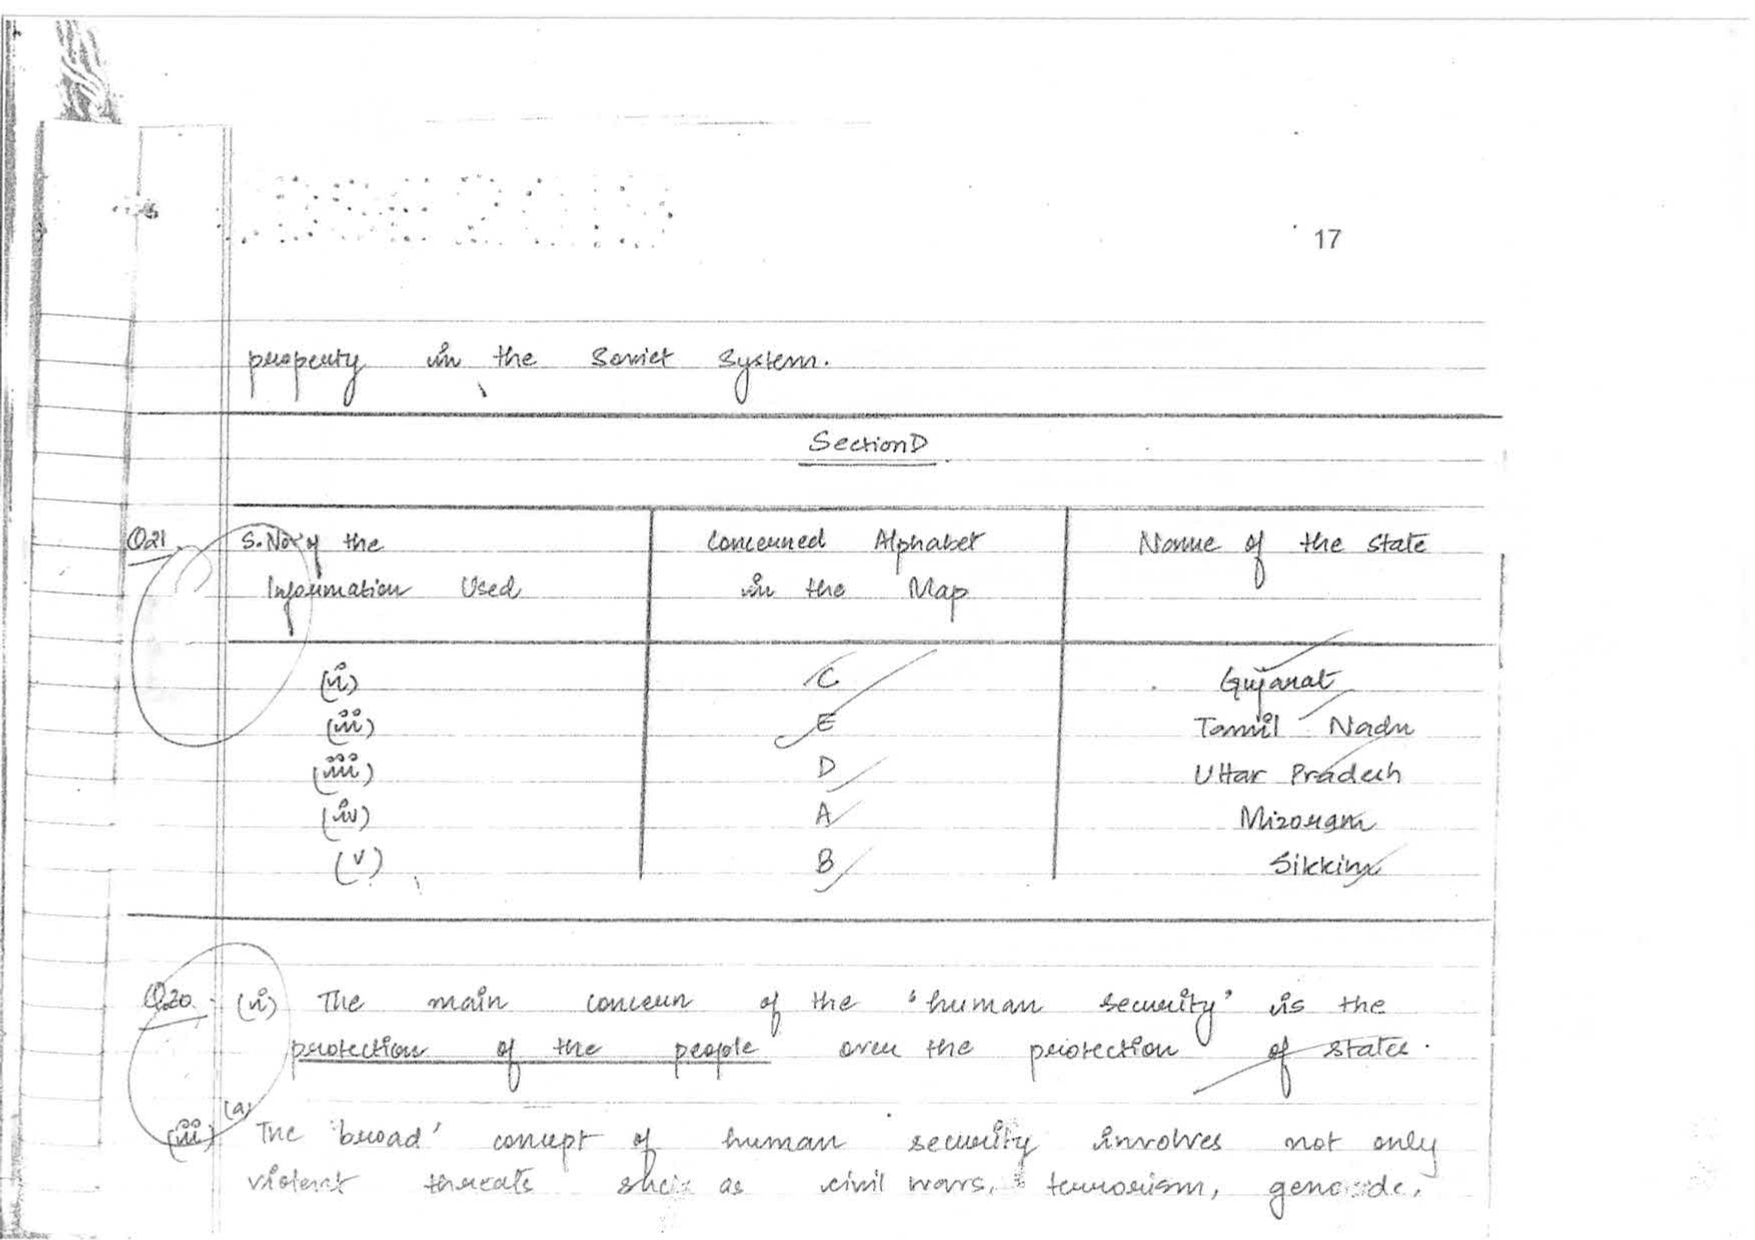 17
property in the Soviet System.
Section D
Q21. S. No of the Concerned Alphabet Name of the state
Information Used in the Map
(i) C Gujarat
(ii) E Tamil Nadu
(iii) D Uttar Pradesh
(iv) A Mizoram
(v) B Sikkim
Q20. (i) The main concern of the 'human security' is the
protection of the people over the protection of states.
(a)
(ii) The 'broad' concept of human security involves not only
violent threats such as civil wars, terrorism, genocide,